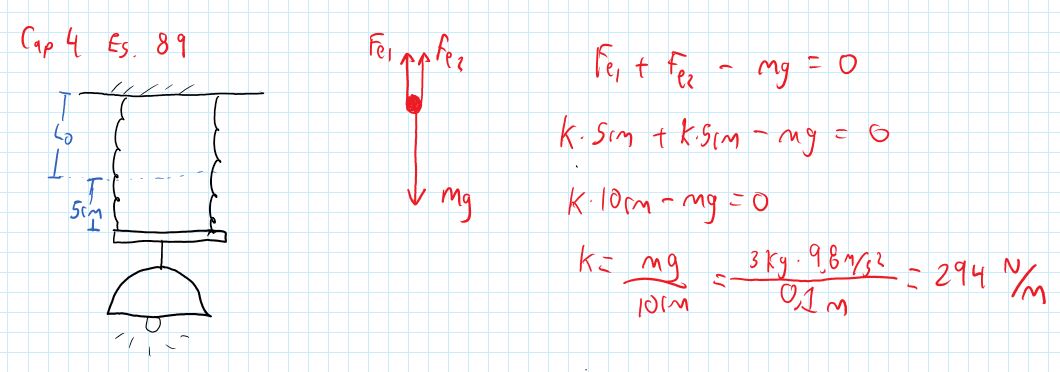 Cap 4 Es. 89
L₀
5cm
Fe₁ Fe₂
mg
Fe₁ + Fe₂ - mg = 0
K·5cm + K·5cm - mg = 0
K·10cm - mg = 0
K = mg/10cm = 3Kg·9,8m/s²/0,1m = 294 N/m